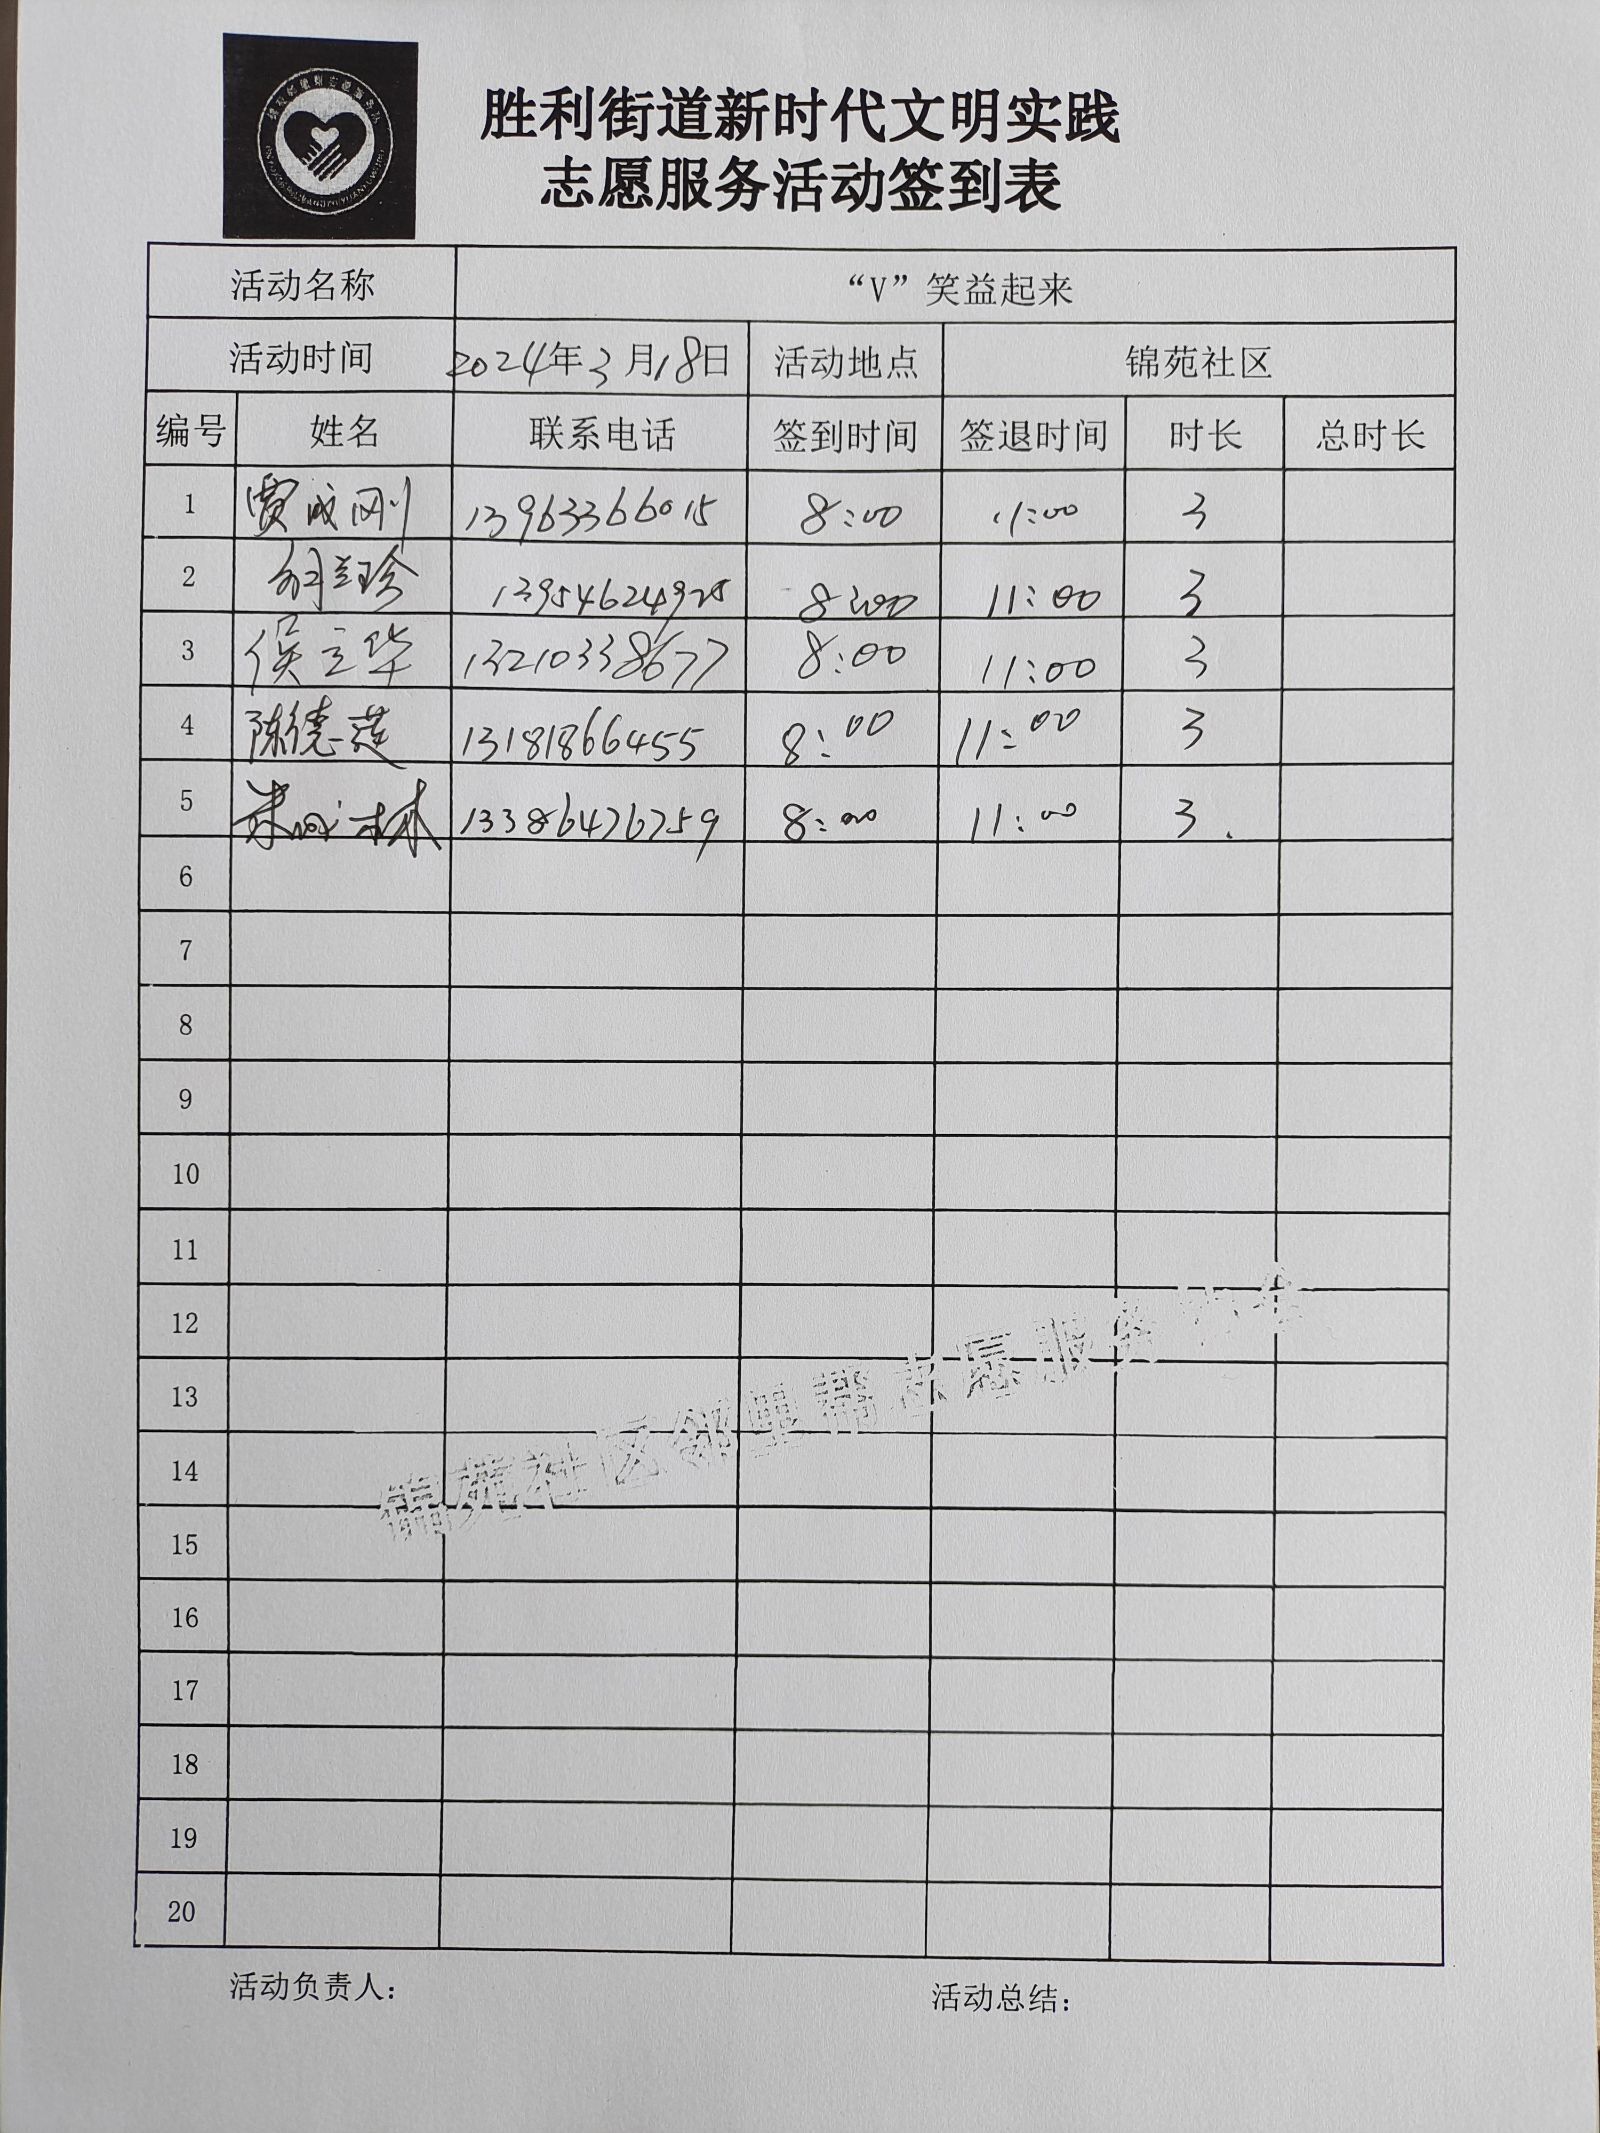 胜利街道新时代文明实践
志愿服务活动签到表
活动名称 “V”笑益起来
活动时间 2024年3月18日 活动地点 锦苑社区
编号 姓名 联系电话 签到时间 签退时间 时长 总时长
1 贾成刚 13963366015 8:00 11:00 3
2 13954624925 8:00 11:00 3
3 侯立华 13210338677 8:00 11:00 3
4 陈德莲 13181866455 8:00 11:00 3
5 朱成林 13386476759 8:00 11:00 3.
6
7
8
9
10
11
12
13
14
15
16
17
18
19
20
锦苑社区邻里帮志愿服务协会
活动负责人： 活动总结：